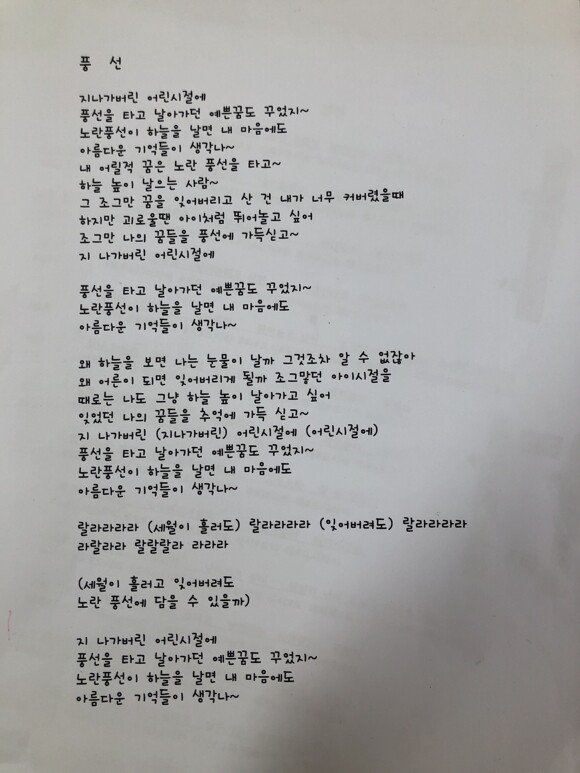 풍 선
지나가버린 어린시절에
풍선을 타고 날아가던 예쁜꿈도 꾸었지~
노란풍선이 하늘을 날면 내 마음에도
아름다운 기억들이 생각나~
내 어릴적 꿈은 노란 풍선을 타고~
하늘 높이 날으는 사람~
그 조그만 꿈을 잊어버리고 산 건 내가 너무 커버렸을때
하지만 괴로울땐 아이처럼 뛰어놀고 싶어
조그만 나의 꿈들을 풍선에 가득싣고~
지 나가버린 어린시절에
풍선을 타고 날아가던 예쁜꿈도 꾸었지~
노란풍선이 하늘을 날면 내 마음에도
아름다운 기억들이 생각나~
왜 하늘을 보면 나는 눈물이 날까 그것조차 알 수 없잖아
왜 어른이 되면 잊어버리게 될까 조그맣던 아이시절을
때로는 나도 그냥 하늘 높이 날아가고 싶어
잊었던 나의 꿈들을 추억에 가득 싣고~
지 나가버린 (지나가버린) 어린시절에 (어린시절에)
풍선을 타고 날아가던 예쁜꿈도 꾸었지~
노란풍선이 하늘을 날면 내 마음에도
아름다운 기억들이 생각나~
랄라라라라 (세월이 흘러도) 랄라라라라 (잊어버려도) 랄라라라라
라랄라라 랄랄랄라 라라라
(세월이 흘러고 잊어버려도
노란 풍선에 담을 수 있을까)
지 나가버린 어린시절에
풍선을 타고 날아가던 예쁜꿈도 꾸었지~
노란풍선이 하늘을 날면 내 마음에도
아름다운 기억들이 생각나~